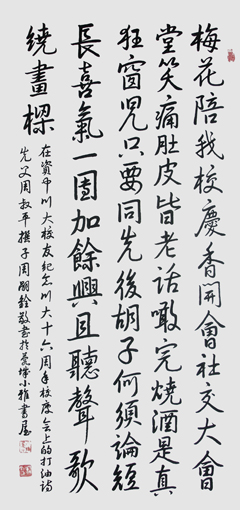 梅花陪我校慶香開會社交大會
堂笑痛肚皮皆老話噉完燒酒是真
狂窗兒只要同先後胡子何須論短
長喜氣一團加餘興且聽聲歌
繞畫樑
在資中川大校友紀念川大十六周年校慶會上的打油詩
先父周叔平撰子周